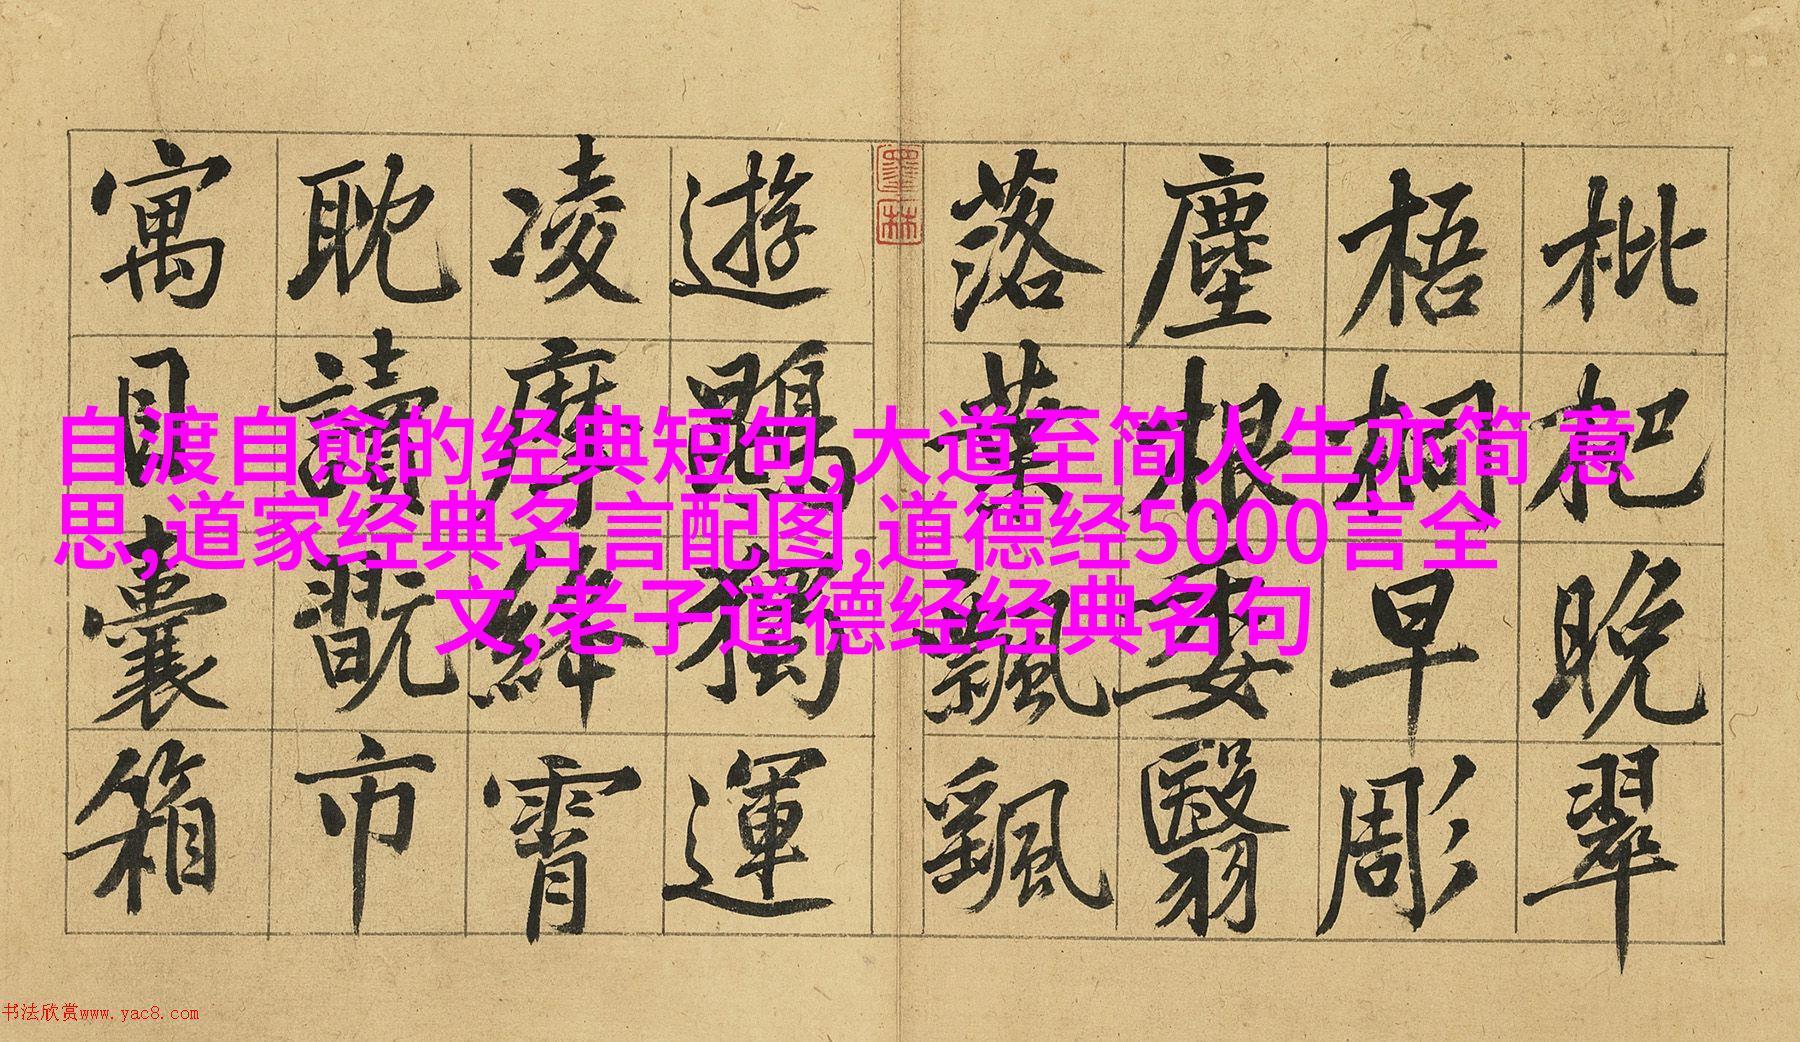 枇杷晚翠
梧桐早彫
塵根委翳
落葉飄颻
墨林
遊鵾獨運
凌摩絳霄
耽讀翫市
寓目囊箱
自渡自愈的经典短句,大道至简人生亦简 意
思,道家经典名言配图,道德经5000言全
文,老子道德经经典名句
书法欣赏www.yac8.com